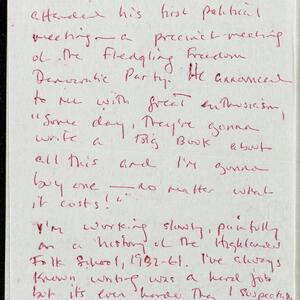 attended his first political
meeting — a precinct meeting
of the Fledgling Freedom
Democratic Party. He announced
to me with great enthusiasm,
"Some day, they're gonna
write a Big Book about
all this and I'm gonna
buy one — no matter what
it costs!"
I'm working slowly, painfully
on a history of the Highlander
Folk School, 1932-61. I've always
known writing was a hard job
but its even harder than I suspected